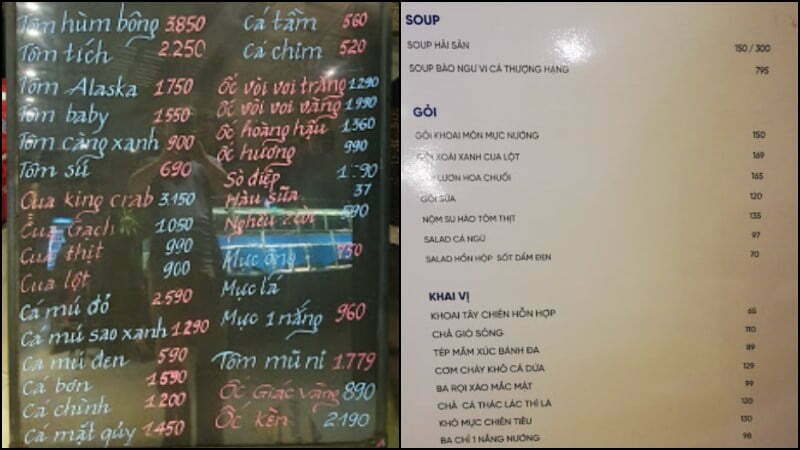 Tôm hùm bông 3.850
Tôm tích 2.250
Tôm Alaska 1750
Tôm baby 1550
Tôm càng xanh 900
Tôm sú 690
Cua king crab 3.150
Cua Gạch 1050
Cua thịt 990
Cua lột 900
Cá mú đỏ 2.590
Cá mú sao xanh 1290
Cá mú đen 590
Cá bơn 1.590
Cá chình 1.200
Cá mặt qủy 1.450
Cá tầm 560
Cá chim 520
Ốc vòi voi trắng 1290
Ốc vòi voi vàng 1.990
Ốc hoàng hậu 1.360
Ốc hương 990
Sò điệp
Hàu sữa 37
Nghêu
Mực ống 750
Mực lá
Mực 1 nắng 960
Tôm mũ ni 1.779
Ốc Giác vàng 890
Ốc kèn 2.190
SOUP
SOUP HẢI SẢN 150 / 300
SOUP BÀO NGƯ VI CÁ THƯỢNG HẠNG 795
GỎI
GỎI KHOAI MÔN MỰC NƯỚNG 150
GỎI XOÀI XANH CUA LỘT 169
LƯƠN HOA CHUỐI 165
GỎI SỨA 120
NỘM SU HÀO TÔM THỊT 135
SALAD CÁ NGỪ 97
SALAD HỖN HỢP SỐT DẤM ĐEN 70
KHAI VỊ
KHOAI TÂY CHIÊN HỖN HỢP 65
CHẢ GIÒ SÒNG 110
TÉP MẮM XÚC BÁNH ĐA 89
CƠM CHÁY KHÔ CÁ DỨA 129
BA RỌI XÀO MẮC MẬT 99
CHẢ CÁ THÁC LÁC THÌ LÀ 120
KHÔ MỰC CHIÊN TIÊU 130
BA CHỈ 1 NẮNG NƯỚNG 98